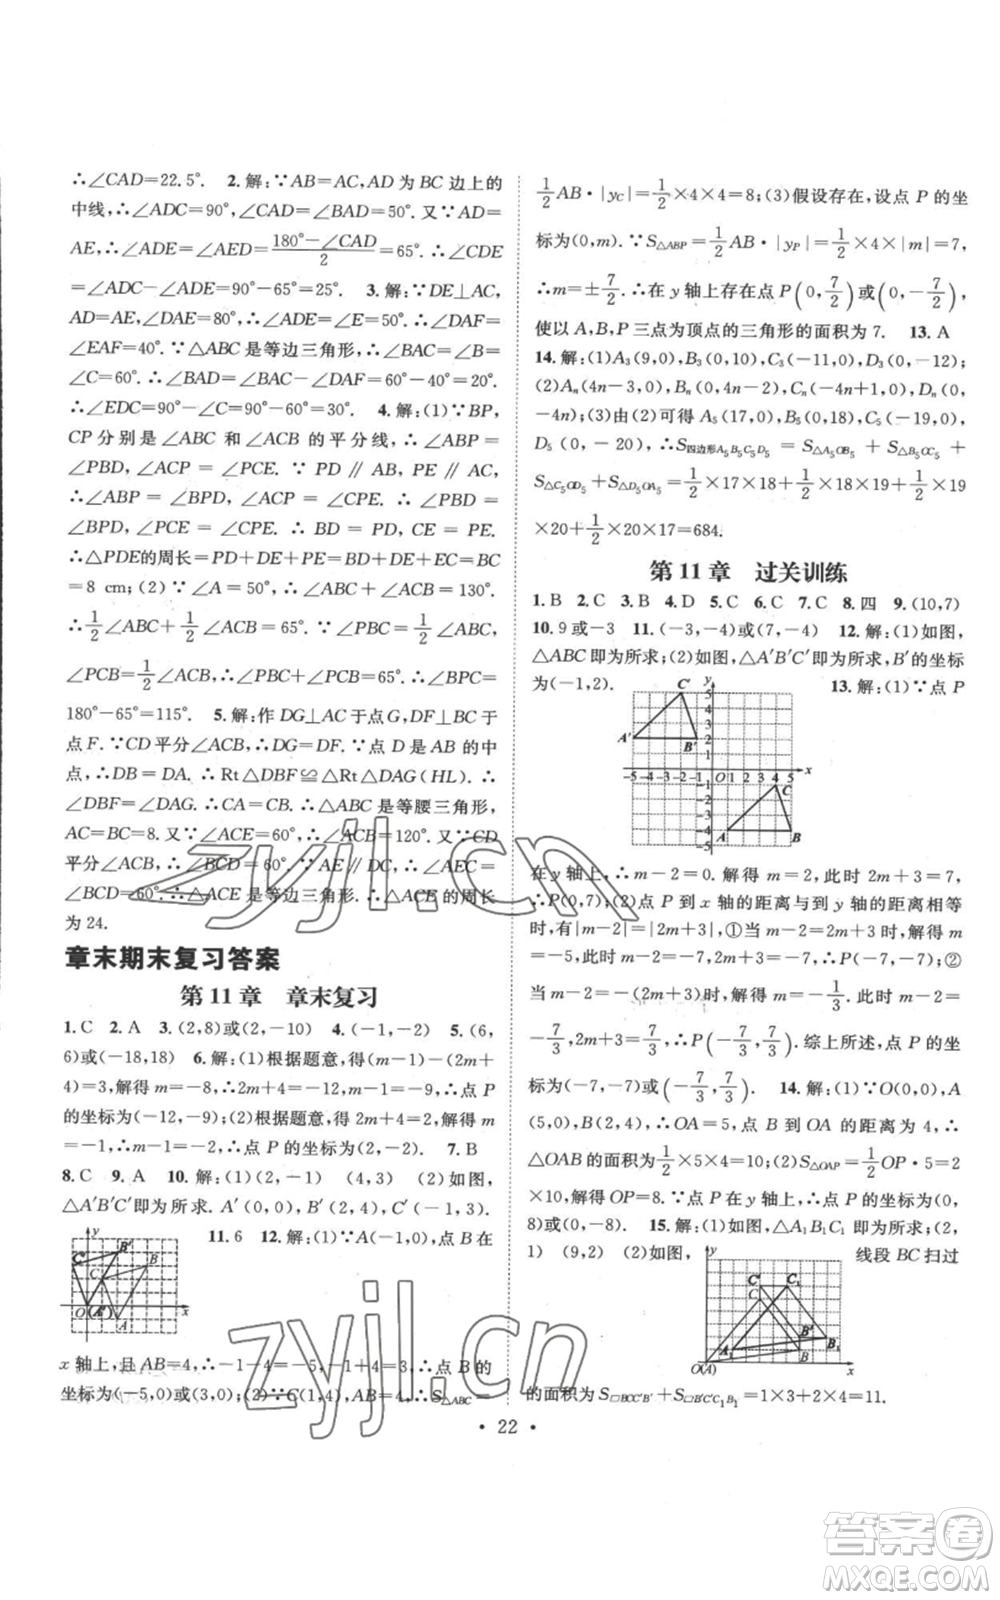 ∴∠CAD=22.5°. 2.解:∵AB=AC,AD为BC边上的
中线,∴∠ADC=90°,∠CAD=∠BAD=50°.又∵AD=
AE,∴∠ADE=∠AED=(180°-∠CAD)/2=65°.∴∠CDE
=∠ADC-∠ADE=90°-65°=25°. 3.解:∵DE⊥AC,
AD=AE,∠DAE=80°,∴∠ADE=∠E=50°.∴∠DAF=
∠EAF=40°.∵△ABC是等边三角形,∴∠BAC=∠B=
∠C=60°.∴∠BAD=∠BAC-∠DAF=60°-40°=20°.
∴∠EDC=90°-∠C=90°-60°=30°. 4.解:(1)∵BP,
CP分别是∠ABC和∠ACB的平分线,∴∠ABP=
∠PBD,∠ACP=∠PCE.∵PD∥AB,PE∥AC,
∴∠ABP=∠BPD,∠ACP=∠CPE.∴∠PBD=
∠BPD,∠PCE=∠CPE.∴BD=PD,CE=PE.
∴△PDE的周长=PD+DE+PE=BD+DE+EC=BC
=8 cm;(2)∵∠A=50°,∴∠ABC+∠ACB=130°.
∴1/2∠ABC+1/2∠ACB=65°.∵∠PBC=1/2∠ABC,
∠PCB=1/2∠ACB,∴∠PBC+∠PCB=65°.∴∠BPC=
180°-65°=115°. 5.解:作DG⊥AC于点G,DF⊥BC于
点F.∵CD平分∠ACB,∴DG=DF.∵点D是AB的中
点,∴DB=DA.∴Rt△DBF≌Rt△DAG(HL).
∴∠DBF=∠DAG.∴CA=CB.∴△ABC是等腰三角形,
AC=BC=8.又∵∠ACE=60°,∴∠ACB=120°.又∵CD
平分∠ACB,∴∠BCD=60°.∵AE∥DC,∴∠AEC=
∠BCD=60°.∴△ACE是等边三角形.∴△ACE的周长
为24.
章末期末复习答案
第11章 章末复习
1.C 2.A 3.(2,8)或(2,-10) 4.(-1,-2) 5.(6,
6)或(-18,18) 6.解:(1)根据题意,得(m-1)-(2m+
4)=3,解得m=-8,∴2m+4=-12,m-1=-9,∴点P
的坐标为(-12,-9);(2)根据题意,得2m+4=2,解得m
=-1,∴m-1=-2,∴点P的坐标为(2,-2). 7.B
8.C 9.A 10.解:(1)(2,-1) (4,3) (2)如图,
△A′B′C′即为所求;A′(0,0),B′(2,4),C′(-1,3).
11.6 12.解:(1)∵A(-1,0),点B在
y
C′ B′ B
C
O(A′) A x
x轴上,且AB=4,∴-1-4=-5,-1+4=3.∴点B的
坐标为(-5,0)或(3,0);(2)∵C(1,4),AB=4,∴S△ABC=
1/2AB·|yC|=1/2×4×4=8;(3)假设存在,设点P的坐
标为(0,m).∵S△ABP=1/2AB·|yP|=1/2×4×|m|=7,
∴m=±7/2.∴在y轴上存在点P(0,7/2)或(0,-7/2),
使以A,B,P三点为顶点的三角形的面积为7. 13.A
14.解:(1)A3(9,0),B3(0,10),C3(-11,0),D3(0,-12);
(2)An(4n-3,0),Bn(0,4n-2),Cn(-4n+1,0),Dn(0,
-4n);(3)由(2)可得A5(17,0),B5(0,18),C5(-19,0),
D5(0,-20),∴S四边形A5B5C5D5=S△A5OB5+S△B5OC5+
S△C5OD5+S△D5OA5=1/2×17×18+1/2×18×19+1/2×19
×20+1/2×20×17=684.
第11章 过关训练
1.B 2.C 3.B 4.D 5.C 6.C 7.C 8.四 9.(10,7)
10.9或-3 11.(-3,-4)或(7,-4) 12.解:(1)如图,
△ABC即为所求;(2)如图,△A′B′C′即为所求,B′的坐标
为(-1,2).
13.解:(1)∵点P
y
C′ 5
4
3
A′ B′ 2
1
-5-4-3-2-1 O 1 2 3 4 5 x
-1 C
-2
-3
-4 A B
-5
在y轴上,∴m-2=0.解得m=2.此时2m+3=7.
∴P(0,7);(2)点P到x轴的距离与到y轴的距离相等
时,有|m-2|=|2m+3|,①当m-2=2m+3时,解得m
=-5,此时m-2=-7,2m+3=-7,∴P(-7,-7);②
当m-2=-(2m+3)时,解得m=-1/3,此时m-2=
-7/3,2m+3=7/3,∴P(-7/3,7/3).综上所述,点P的坐
标为(-7,-7)或(-7/3,7/3). 14.解:(1)∵O(0,0),A
(5,0),B(2,4),∴OA=5,点B到OA的距离为4,∴
△OAB的面积为1/2×5×4=10;(2)S△OAP=1/2OP·5=2
×10,解得OP=8.∵点P在y轴上,∴点P的坐标为(0,
8)或(0,-8). 15.解:(1)如图,△A1B1C1即为所求;(2,
1) (9,2) (2)如图,
线段BC扫过
y
C′ C1
C
B′ B1
A1 B
O(A) x
的面积为S▱BCC′B′+S▱B′C′C1B1=1×3+2×4=11.
· 22 ·
zyjl.cn
zyjl.cn
答案圈
MXQE.COM